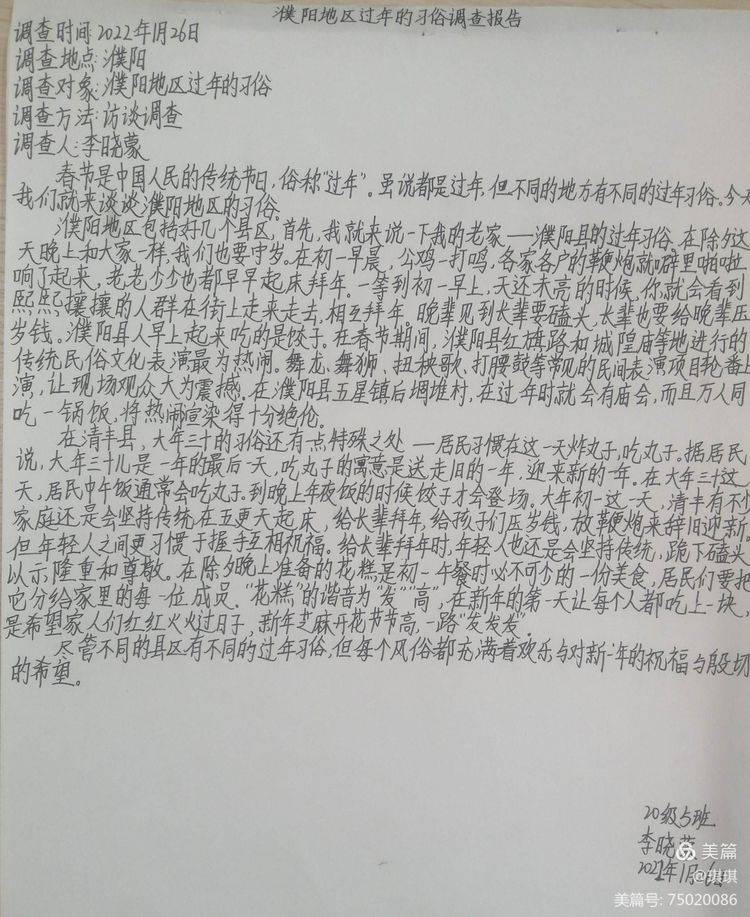 濮阳地区过年的习俗调查报告
调查时间:2022年1月26日
调查地点:濮阳
调查对象:濮阳地区过年的习俗
调查方法:访谈调查
调查人:李晓蒙
春节是中国人民的传统节日,俗称“过年”。虽说都是过年,但不同的地方有不同的过年习俗。今天
我们就来谈谈濮阳地区的习俗。
濮阳地区包括好几个县区,首先,我就来说一下我的老家——濮阳县的过年习俗。在除夕这
天晚上和大家一样,我们也要守岁。在初一早晨,公鸡一打鸣,各家各户的鞭炮就噼里啪啦
响了起来,老老少少也都早早起床拜年。一等到初一早上,天还未亮的时候,你就会看到
熙熙攘攘的人群在街上走来走去,相互拜年。晚辈见到长辈要磕头,长辈也要给晚辈压
岁钱。濮阳县人早上起来吃的是饺子。在春节期间,濮阳县红旗路和城隍庙等地进行的
传统民俗文化表演最为热闹。舞龙、舞狮、扭秧歌、打腰鼓等常见的民间表演项目轮番上
演,让现场观众大为震撼。在濮阳县五星镇后堌堆村,在过年时就会有庙会,而且万人同
吃一锅饭,将热闹渲染得十分绝伦。
在清丰县,大年三十的习俗还有点特殊之处——居民习惯在这一天炸丸子,吃丸子。据居民
说,大年三十儿是一年的最后一天,吃丸子的寓意是送走旧的一年,迎来新的一年。在大年三十这
天,居民中午饭通常会吃丸子。到晚上年夜饭的时候饺子才会登场。大年初一这一天,清丰有不少
家庭还是会坚持传统在五更天起床,给长辈拜年,给孩子们压岁钱,放鞭炮来辞旧迎新。
但年轻人之间更习惯于握手互相祝福。给长辈拜年时,年轻人也还是会坚持传统,跪下磕头
以示隆重和尊敬。在除夕晚上准备的花糕是初一午餐时必不可少的一份美食,居民们要把
它分给家里的每一位成员。“花糕”的谐音为“发”“高”,在新年的第一天让每个人都吃上一块,
是希望家人们红红火火过日子,新年芝麻开花节节高,一路“发发发”。
尽管不同的县区有不同的过年习俗,但每个风俗都充满着欢乐与对新一年的祝福与殷切
的希望。
20级5班
李晓蒙
2022年1月
美篇
@琪琪
美篇号: 75020086